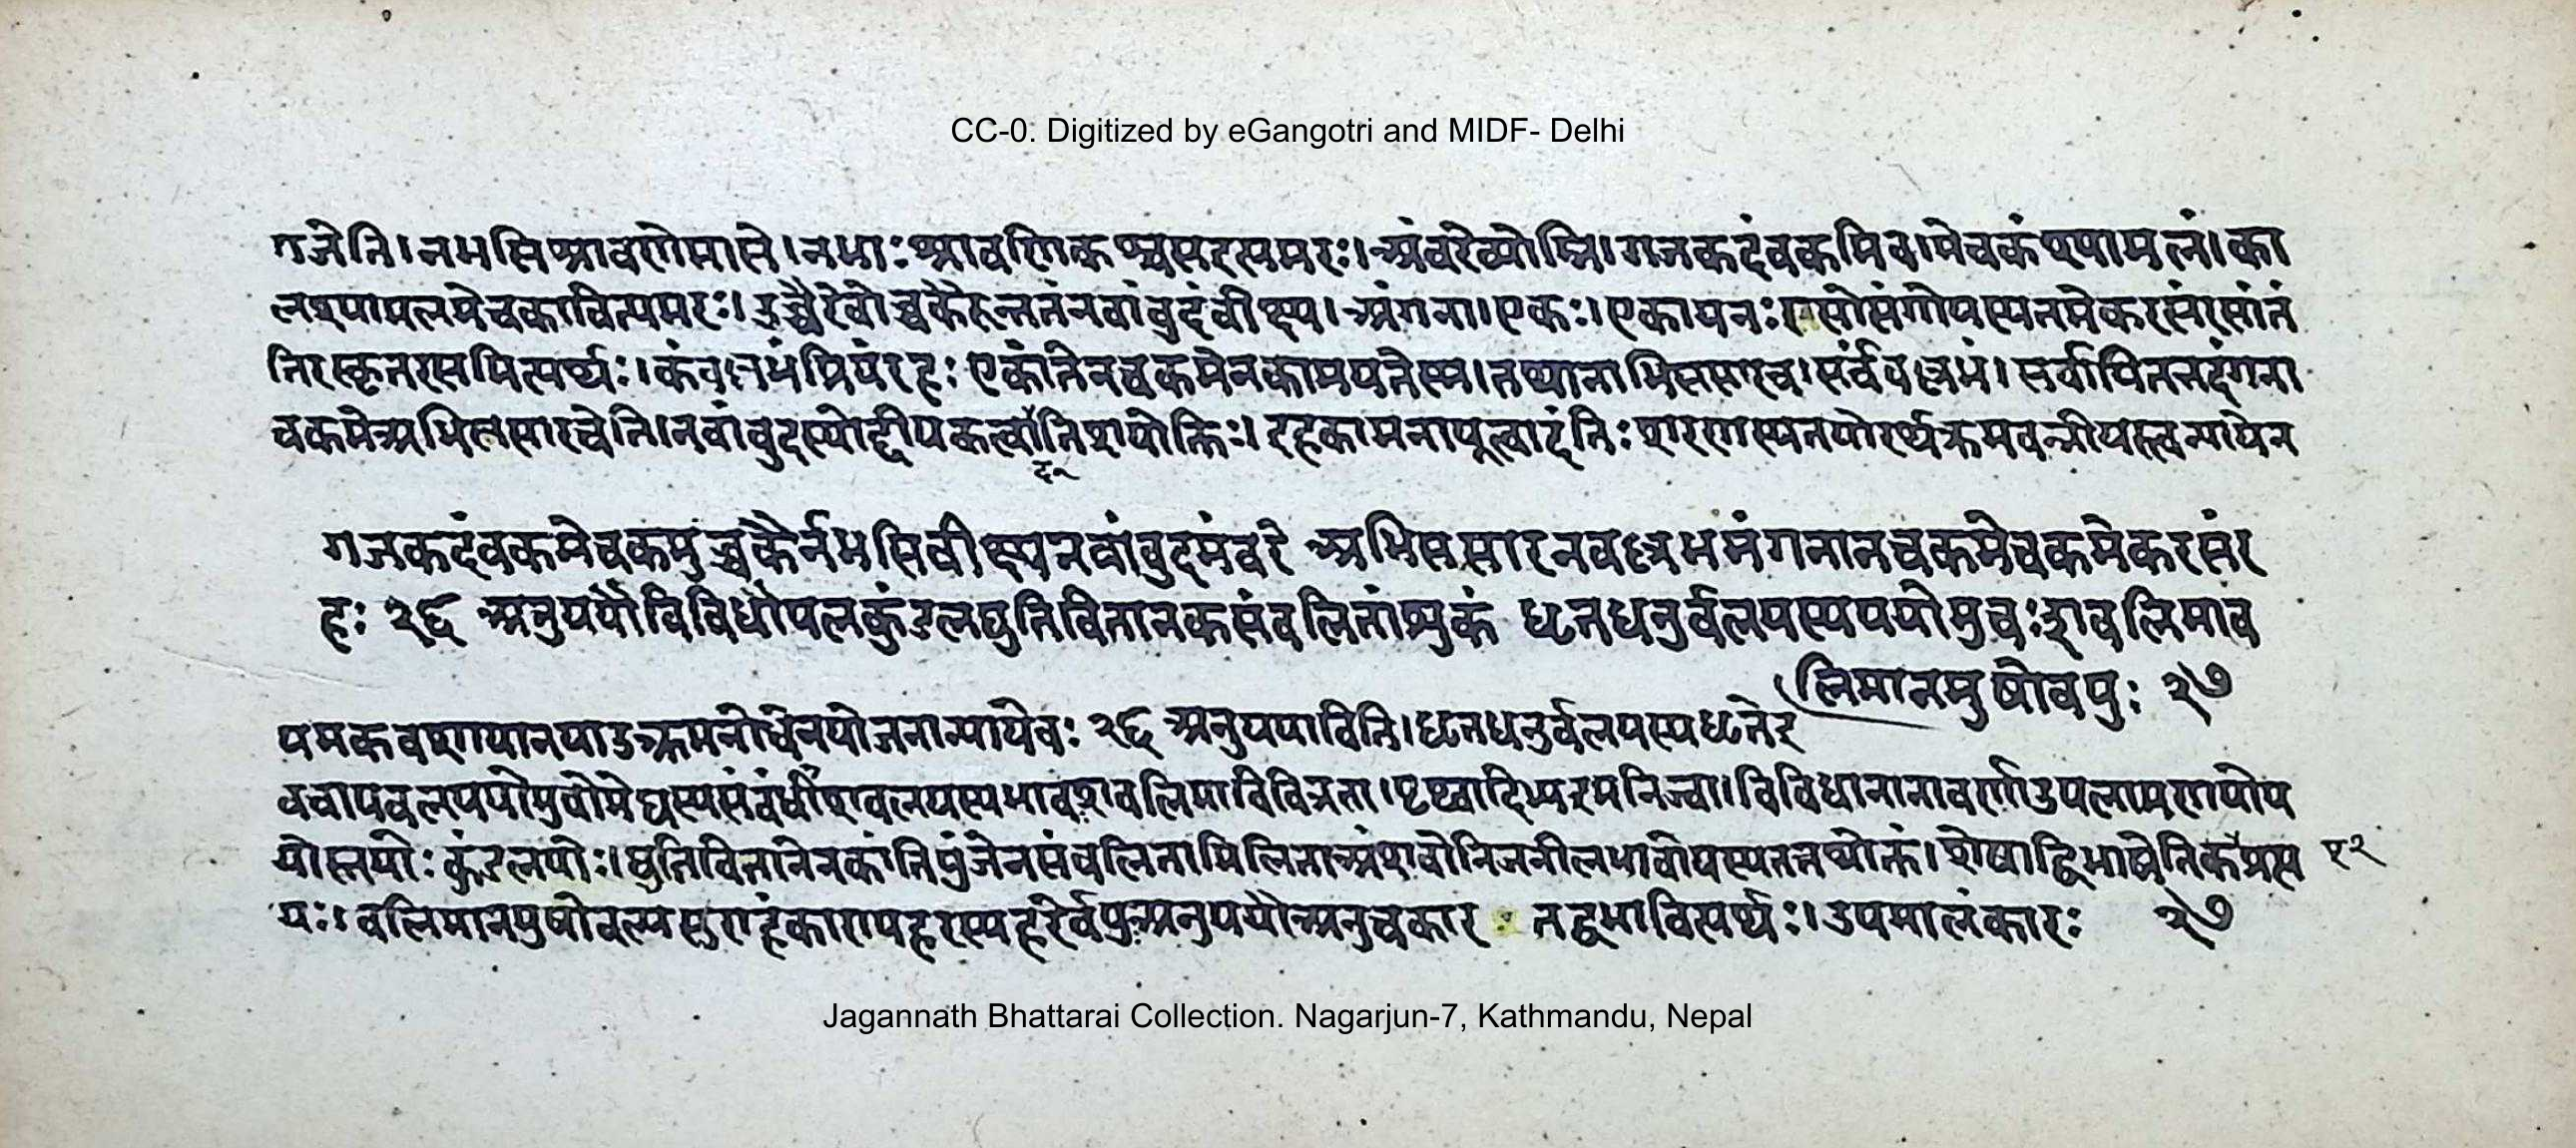 CC-0. Digitized by eGangotri and MIDF- Delhi
गजेति। नभसि श्रावणेमासे। नभाः श्रावणिकश्चसइत्यमरः। अंवरेव्योम्नि। गजकदंवकमिव। मेचकं श्यामलं। का
लश्यामलमेचकावित्यमरः। उच्चैरेवोच्चकैरुन्नतंनवांवुदंवीक्ष्य। अंगना। एकः। एकायनः रसोसंगोयस्यतमेकरसंरसांतं
तिरस्कृतरसमित्यर्थः। कंवल्लभंप्रियंरहः एकांतेनचकमेनकामयतेस्म। तथानाभिससारच। सर्ववल्लभं। सर्वापितत्तदंगना
चकमेअभिससारचेति। नवांवुदस्योद्दीपकत्वातिशयोक्तिः। इहकामनापूर्वत्वादंतिःशरणस्यतयोरर्थक्रमवत्त्रीयस्त्वन्यायेन
दु
गजकदंवकमेचकमुच्चकैर्नभसिवीक्ष्यनवांवुदमंवरे अभिससारनवल्लभमंगनानचकमेचकमेकरसंर
हः २६ अनुययौविविधोपलकुंडलद्युतिवितानकसंवलितांशुकं धृतधनुर्वलयस्यपयोमुचःशवलिमाव
लिमानमुषोवपुः २७
यमकवशायानपाठक्रममनोधेनयोजनान्यायेवः २६ अनुययाविति। धृतधनुर्वलयस्यधृतेंद्र
वचापवलयपयोमुचोमेघस्यसंवंधीशवलयस्यभावशवलिमाविचित्रता। पृथ्वादिभ्यइमनिज्वा। विविधानानावर्णाउपलामणयोय
योस्तयोः कुंडलयोः। द्युतिवितानेनकांतिपुंजेनसंवलितामिलिताअंशवोनिजनीलभावोयस्यतत्तथोक्तं। शेषाद्विभाषेतिकप्प्रत्य १२
यः। वलिमानमुषोवल्यसुराहंकारापहरस्यहरेर्वपुःअनुययौअनुचकार तद्वभावित्यर्थः। उपमालंकारः २७
Jagannath Bhattarai Collection. Nagarjun-7, Kathmandu, Nepal